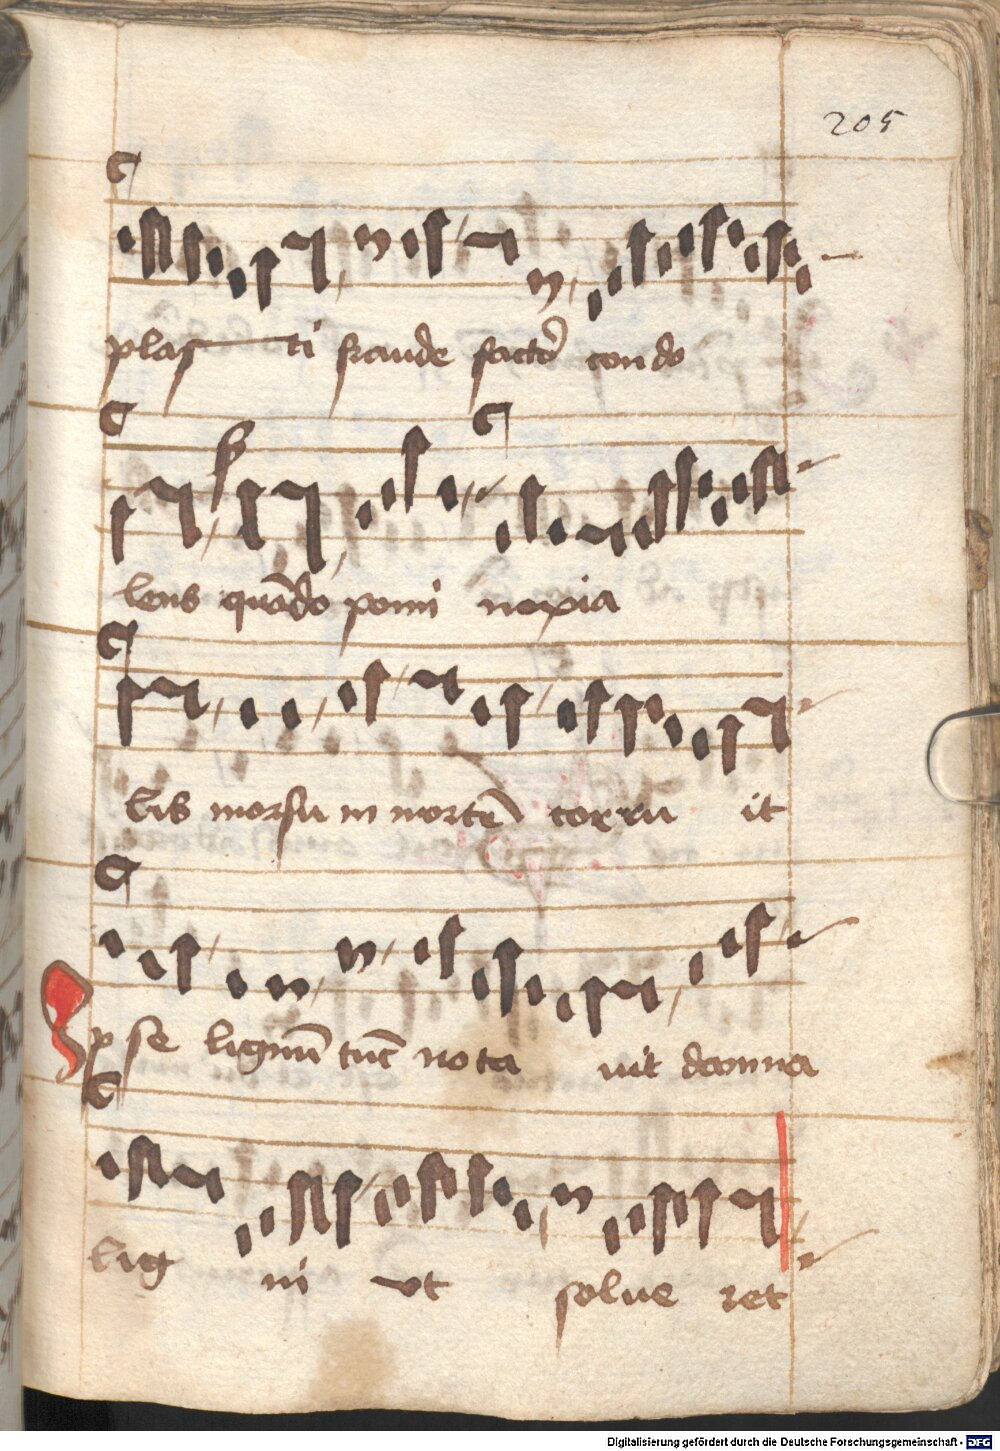 205
plas ti fraude factor con do
lens quādo pomi noxia
lis morsu in mortē corru it
Ipse lignū tūc nota uit damna
lig ni vt solue ret
Digitalisierung gefördert durch die Deutsche Forschungsgemeinschaft - DFG